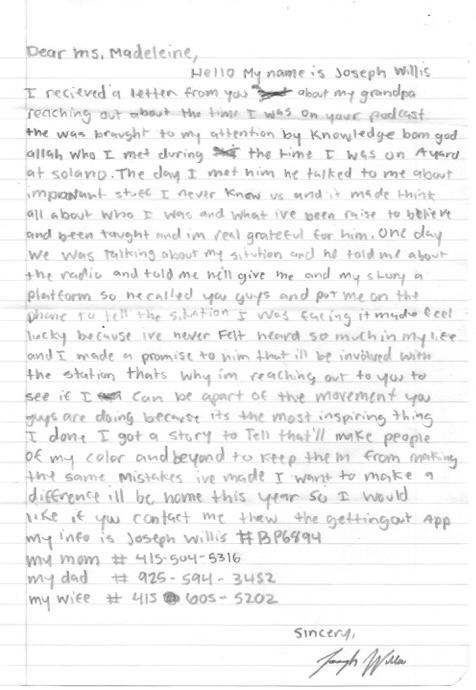 Dear Ms. Madeleine,
Hello My name is Joseph Willis
I recieved a letter from you about my grandpa
reaching out about the time I was on your podcast
the was braught to my attention by Knowledge bam god
allah who I met during the time I was on Ayard
at solano. The day I met him he talked to me about
important stuff I never know us and it made think
all about who I was and what ive been raise to believe
and been taught and im real grateful for him. One day
we was talking about my sitution and he told me about
the radio and told me he'll give me and my story a
platform so he called you guys and put me on the
phone to tell the situation I was facing it made feel
lucky because ive never felt heard so much in my life
and I made a promise to him that ill be involved with
the station thats why im reaching out to you to
see if I can be apart of the movement you
guys are doing because its the most inspiring thing
I done I got a story to Tell that'll make people
of my color and beyond to keep them from making
the same Mistakes ive made I want to make a
difference ill be home this year so I would
like if you contact me thew the gettingout App
my info is Joseph Willis #BP6894
my mom # 415-504-5316
my dad # 925-594-3452
my wife # 415 605-5202
Sincery,
Joseph Willis